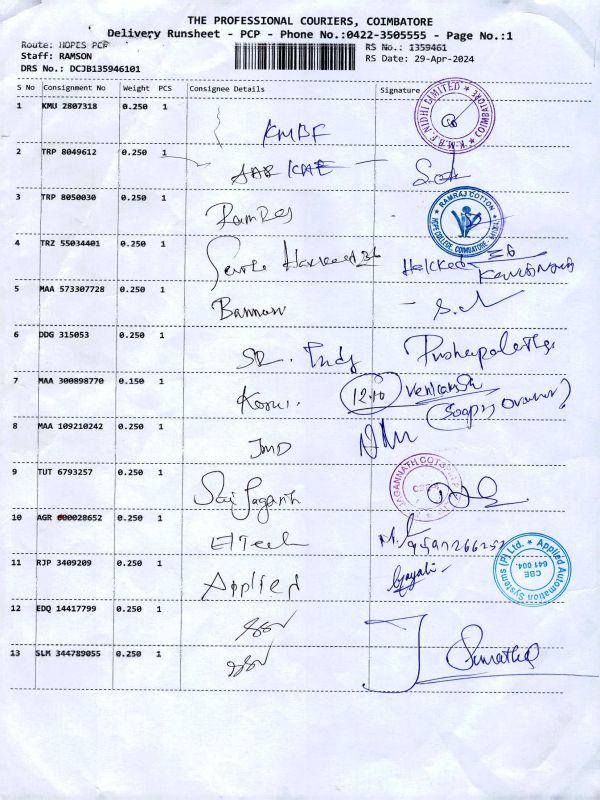 THE PROFESSIONAL COURIERS, COIMBATORE
Delivery Runsheet - PCP - Phone No.:0422-3505555 - Page No.:1
Route: HOPES PCP
RS No.: 1359461
Staff: RAMSON
RS Date: 29-Apr-2024
DRS No.: DCJB135946101
S No Consignment No Weight PCS Consignee Details Signature
1 KMU 2807318 0.250 1 KMBF
K.M.B.F. NIDHI LIMITED * COIMBATORE *
2 TRP 8049612 0.250 1
3 TRP 8050030 0.250 1
RAMRAJ COTTON
HOPE COLLEGE, COIMBATORE
4 TRZ 55034401 0.250 1
5 MAA 573307728 0.250 1 Bannari
6 DDG 315053 0.250 1 Pushapalatha
7 MAA 300898770 0.150 1 12.10 Venkatesh
8 MAA 109210242 0.250 1 JMD
9 TUT 6793257 0.250 1 Sai Jaganth
10 AGR 600028652 0.250 1 El Tech
11 RJP 3409209 0.250 1 Applied Gayali
Applied Automation Systems (P) Ltd. *
CBE
641 004.
12 EDQ 14417799 0.250 1
13 SLM 344789055 0.250 1 Sumathi